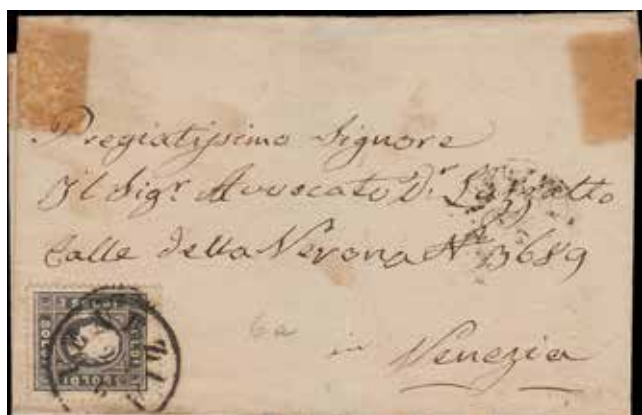 Pregiatissimo Signore
Il Sigr. Avvocato Dr. Luzzatto
Calle della Verona No 3689
6a
in Venezia
SOLDI